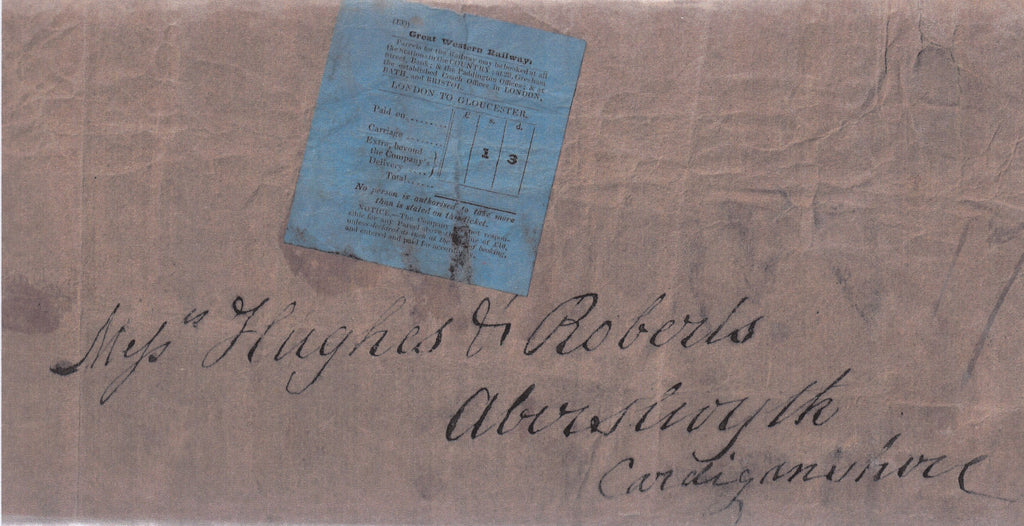 (139)
Great Western Railway.
Parcels for the Railway may be booked at all
the Stations in the COUNTRY; at 29, Gresham
Street, Bank; & the Paddington Offices; & at
the established Coach Offices in LONDON,
BATH, and BRISTOL.
LONDON TO GLOUCESTER.
£ s. d.
Paid on
Carriage
1 3
Extra, beyond
the Company's
Delivery
Total
No person is authorised to take more
than is stated on this ticket.
NOTICE.—The Company not respon-
sible for any Parcel above of £10,
unless declared as such at the of booking,
and entered and paid for accordingly
Messrs Hughes & Roberts
Aberystwyth
Cardiganshire